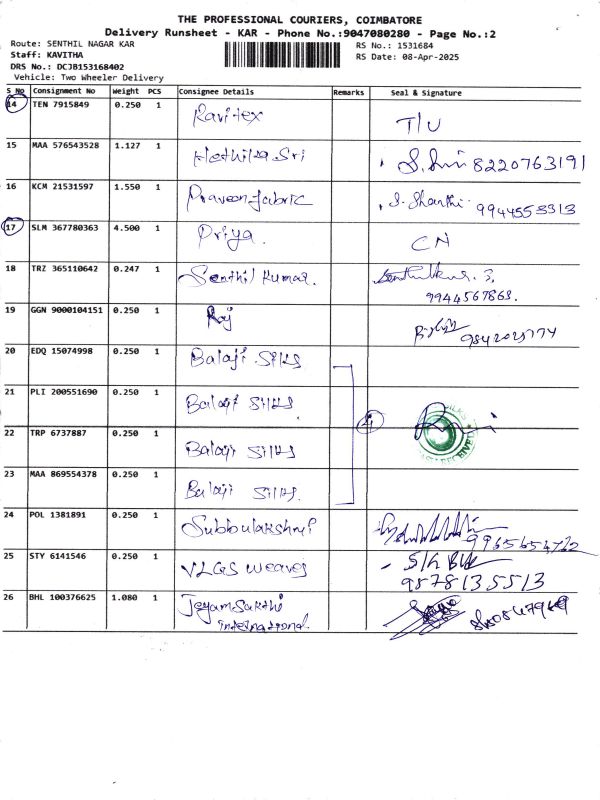 THE PROFESSIONAL COURIERS, COIMBATORE
Delivery Runsheet - KAR - Phone No.:9047080280 - Page No.:2
Route: SENTHIL NAGAR KAR
RS No.: 1531684
Staff: KAVITHA
RS Date: 08-Apr-2025
DRS No.: DCJB153168402
Vehicle: Two Wheeler Delivery
S No Consignment No Weight PCS Consignee Details Remarks Seal & Signature
14 TEN 7915849 0.250 1 Ravitex T/U
15 MAA 576543528 1.127 1 Sri 8220763191
16 KCM 21531597 1.550 1 Praveen fabric S. Shanthi 9944553313
17 SLM 367780363 4.500 1 Priya. CN
18 TRZ 365110642 0.247 1 Senthil Kumar.
9944567863.
19 GGN 9000104151 0.250 1 Raj
20 EDQ 15074998 0.250 1 Balaji Silks
21 PLI 200551690 0.250 1 Balaji Silks 4
22 TRP 6737887 0.250 1 Balaji Silks
23 MAA 869554378 0.250 1 Balaji Silks.
24 POL 1381891 0.250 1 Subbulakshmi
25 STY 6141546 0.250 1 VLGS weaves
9578135513
26 BHL 100376625 1.080 1 Jeyamsakthi
International.